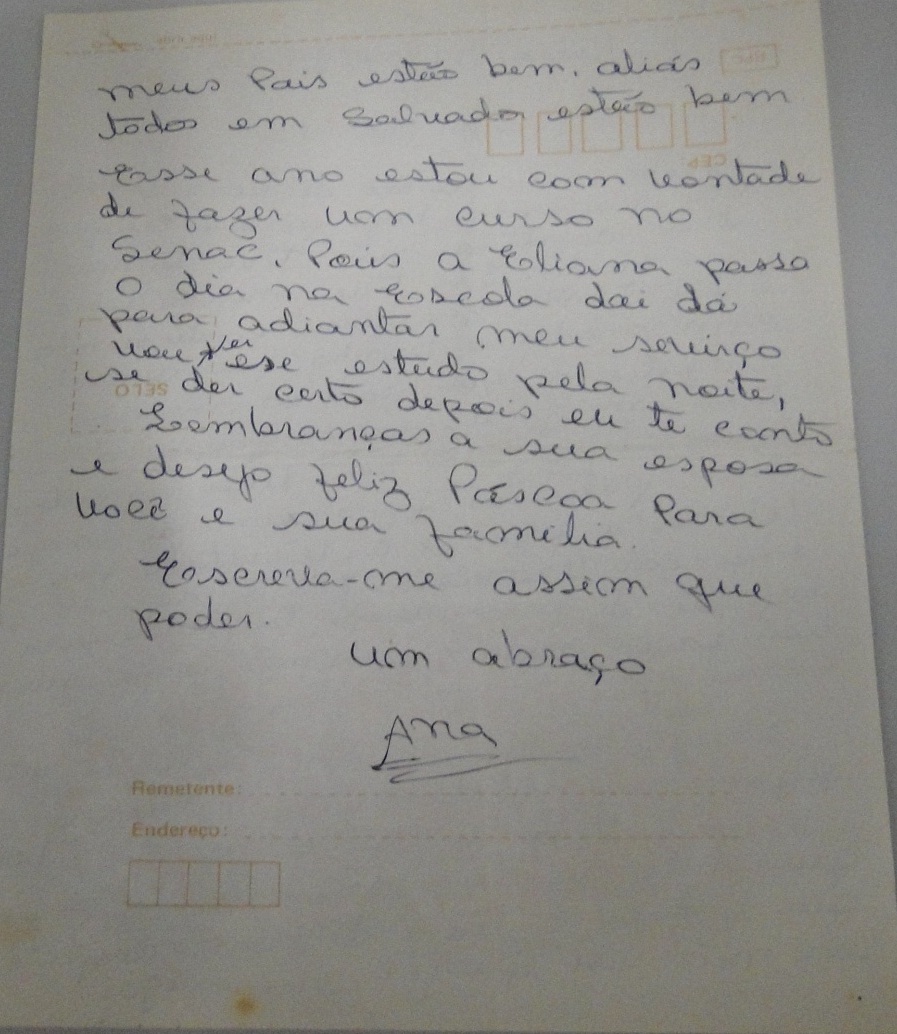 meus Pais estão bem, aliás
todos em Salvador estão bem
Esse ano estou com vontade
de fazer um curso no
Senac. Pois a Eliana passa
o dia na Escola dai dá
para adiantar meu serviço
vou ver ese estudo pela noite,
se der certo depois eu te conto
Lembranças a sua esposa
e desejo feliz Páscoa Para
você e sua família.
Escreva-me assim que
poder.
um abraço
Ana
Remetente:
Endereço:
CEP
SELO